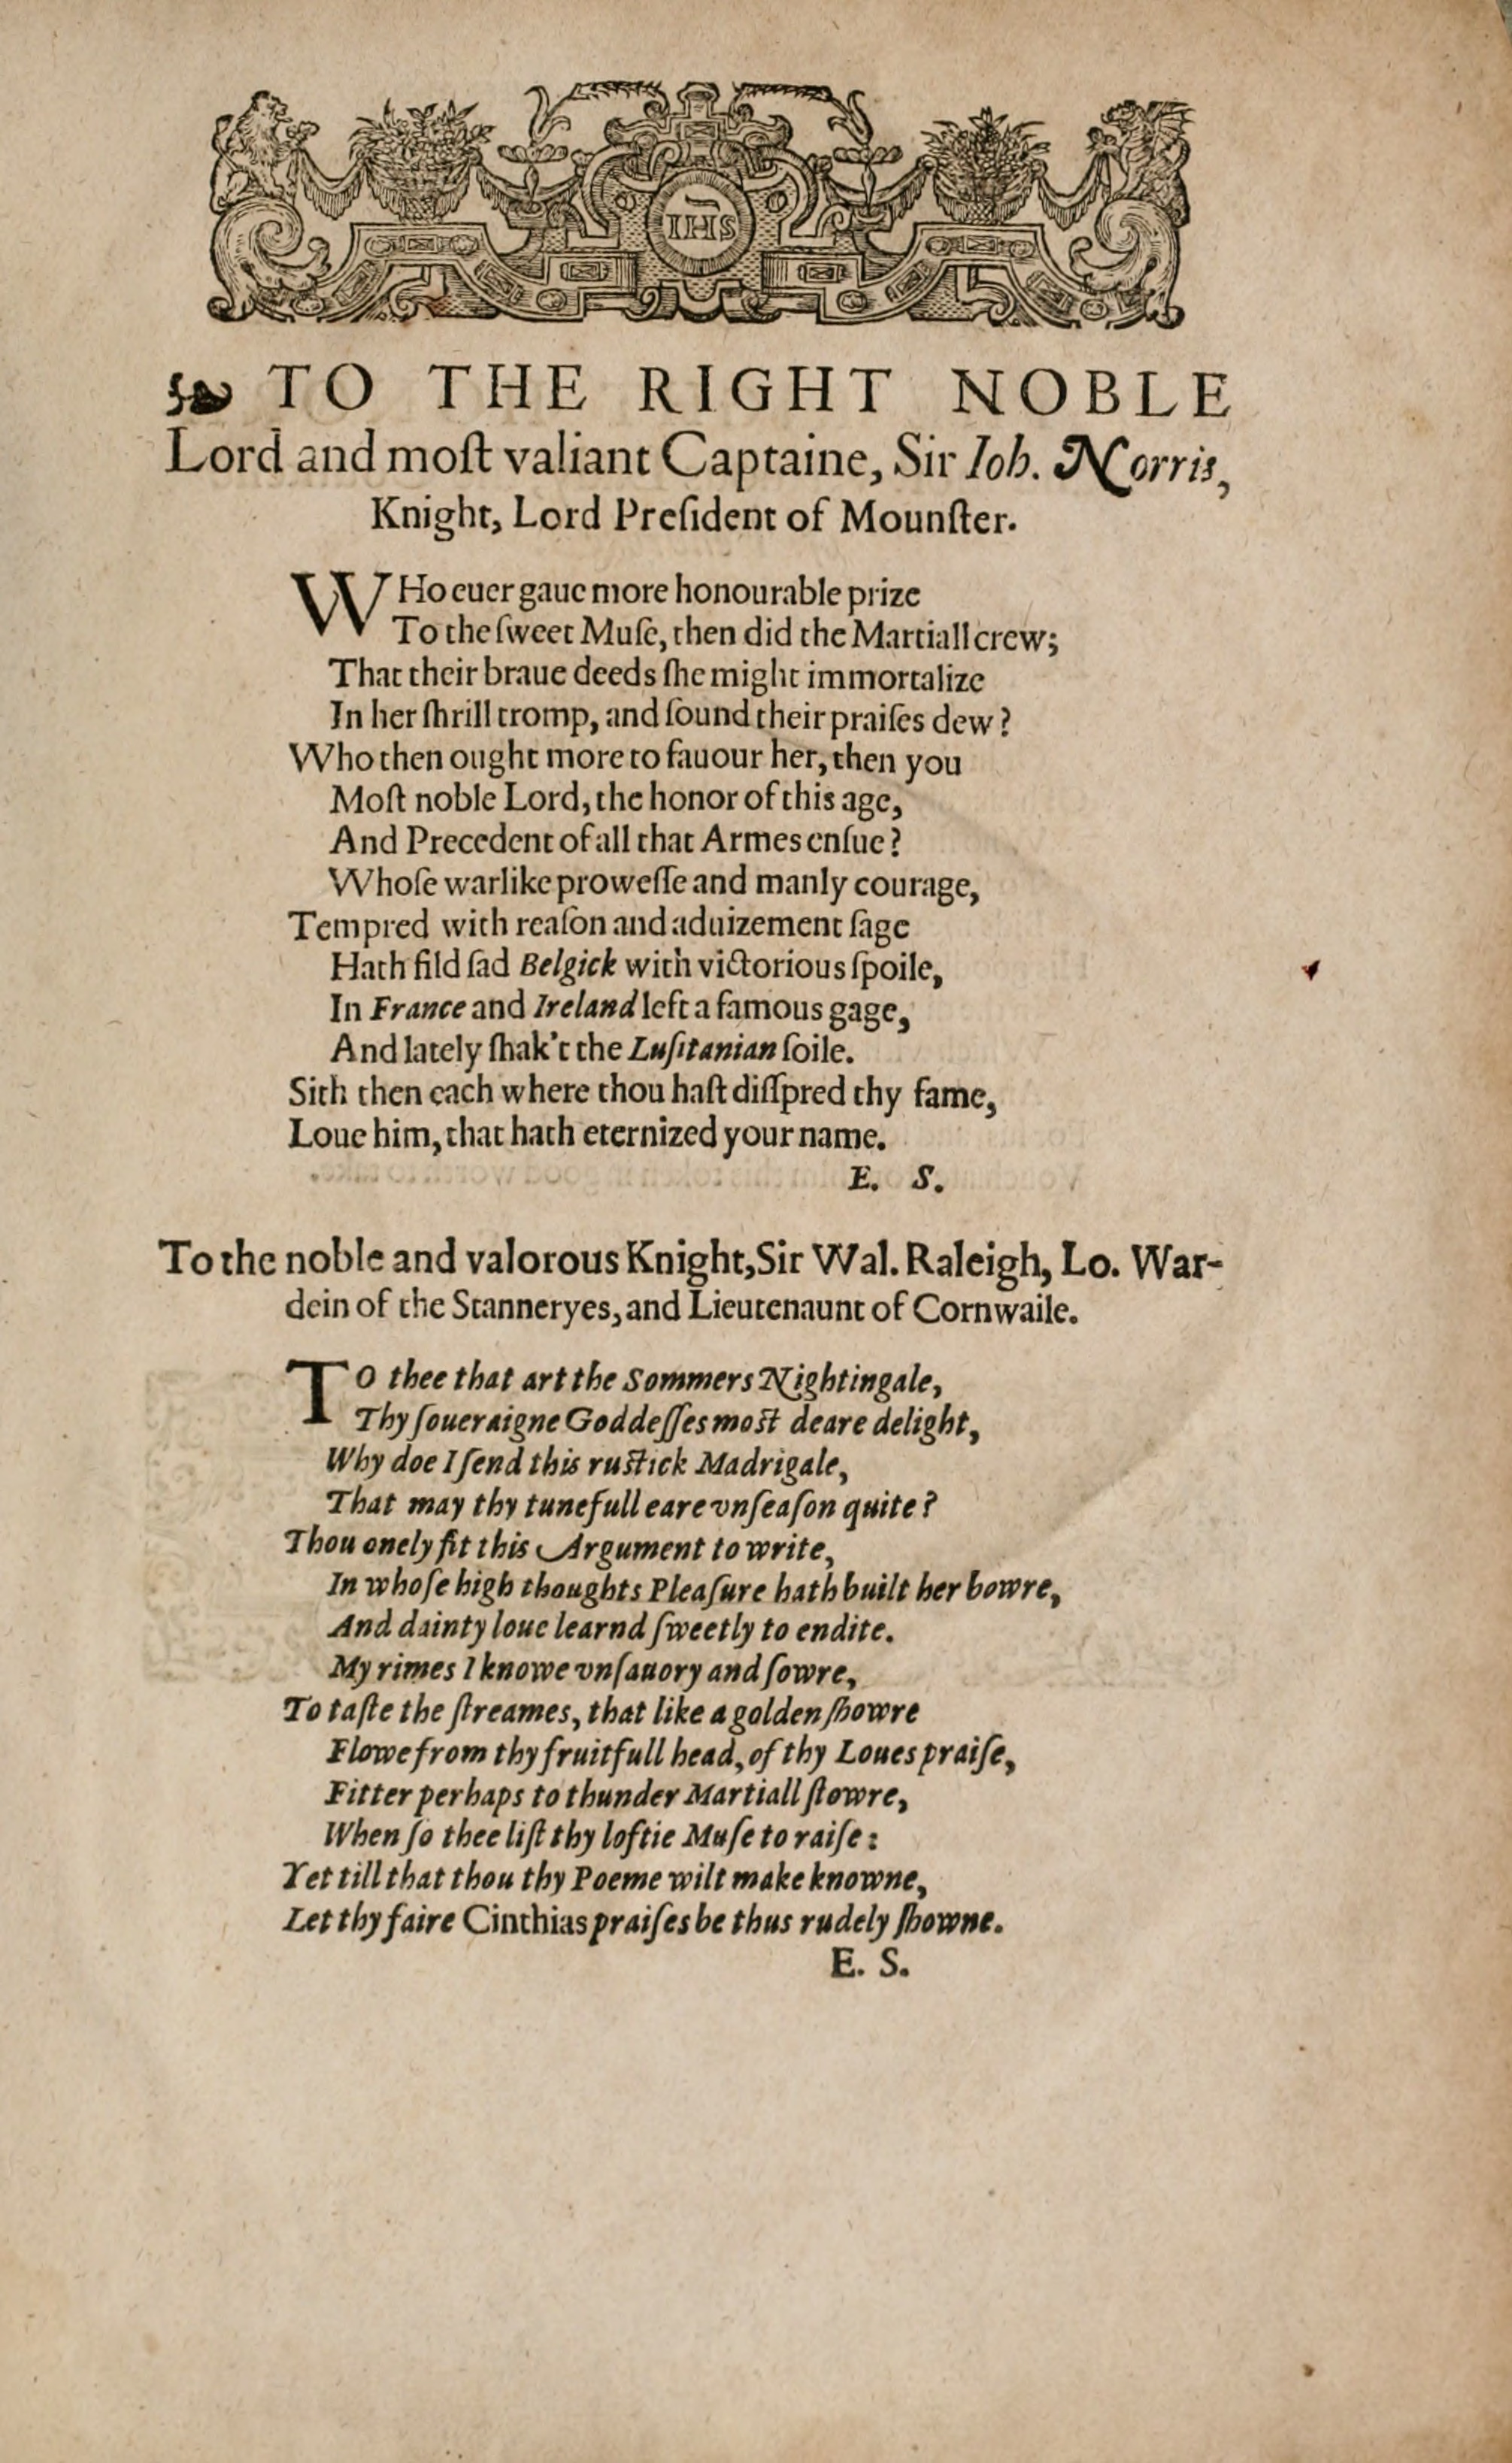 IHS
TO THE RIGHT NOBLE
Lord and moſt valiant Captaine, Sir Ioh. Norris,
Knight, Lord Preſident of Mounſter.
WHo euer gaue more honourable prize
To the ſweet Muſe, then did the Martiall crew;
That their braue deeds ſhe might immortalize
In her ſhrill tromp, and ſound their praiſes dew?
Who then ought more to fauour her, then you
Moſt noble Lord, the honor of this age,
And Precedent of all that Armes enſue?
Whoſe warlike proweſſe and manly courage,
Tempred with reaſon and aduizement ſage
Hath fild ſad Belgick with victorious ſpoile,
In France and Ireland left a famous gage,
And lately ſhak't the Luſitanian ſoile.
Sith then each where thou haſt diſſpred thy fame,
Loue him, that hath eternized your name.
E. S.
To the noble and valorous Knight, Sir Wal. Raleigh, Lo. War-
dein of the Stanneryes, and Lieutenaunt of Cornwaile.
TO thee that art the Sommers Nightingale,
Thy ſoueraigne Goddeſſes moſt deare delight,
Why doe I ſend this ruſtick Madrigale,
That may thy tunefull eare vnſeaſon quite?
Thou onely fit this Argument to write,
In whoſe high thoughts Pleaſure hath built her bowre,
And dainty loue learnd ſweetly to endite.
My rimes I knowe vnſauory and ſowre,
To taſte the ſtreames, that like a golden ſhowre
Flowe from thy fruitfull head, of thy Loues praiſe,
Fitter perhaps to thunder Martiall ſtowre,
When ſo thee liſt thy loftie Muſe to raiſe:
Yet till that thou thy Poeme wilt make knowne,
Let thy faire Cinthias praiſes be thus rudely ſhowne.
E. S.